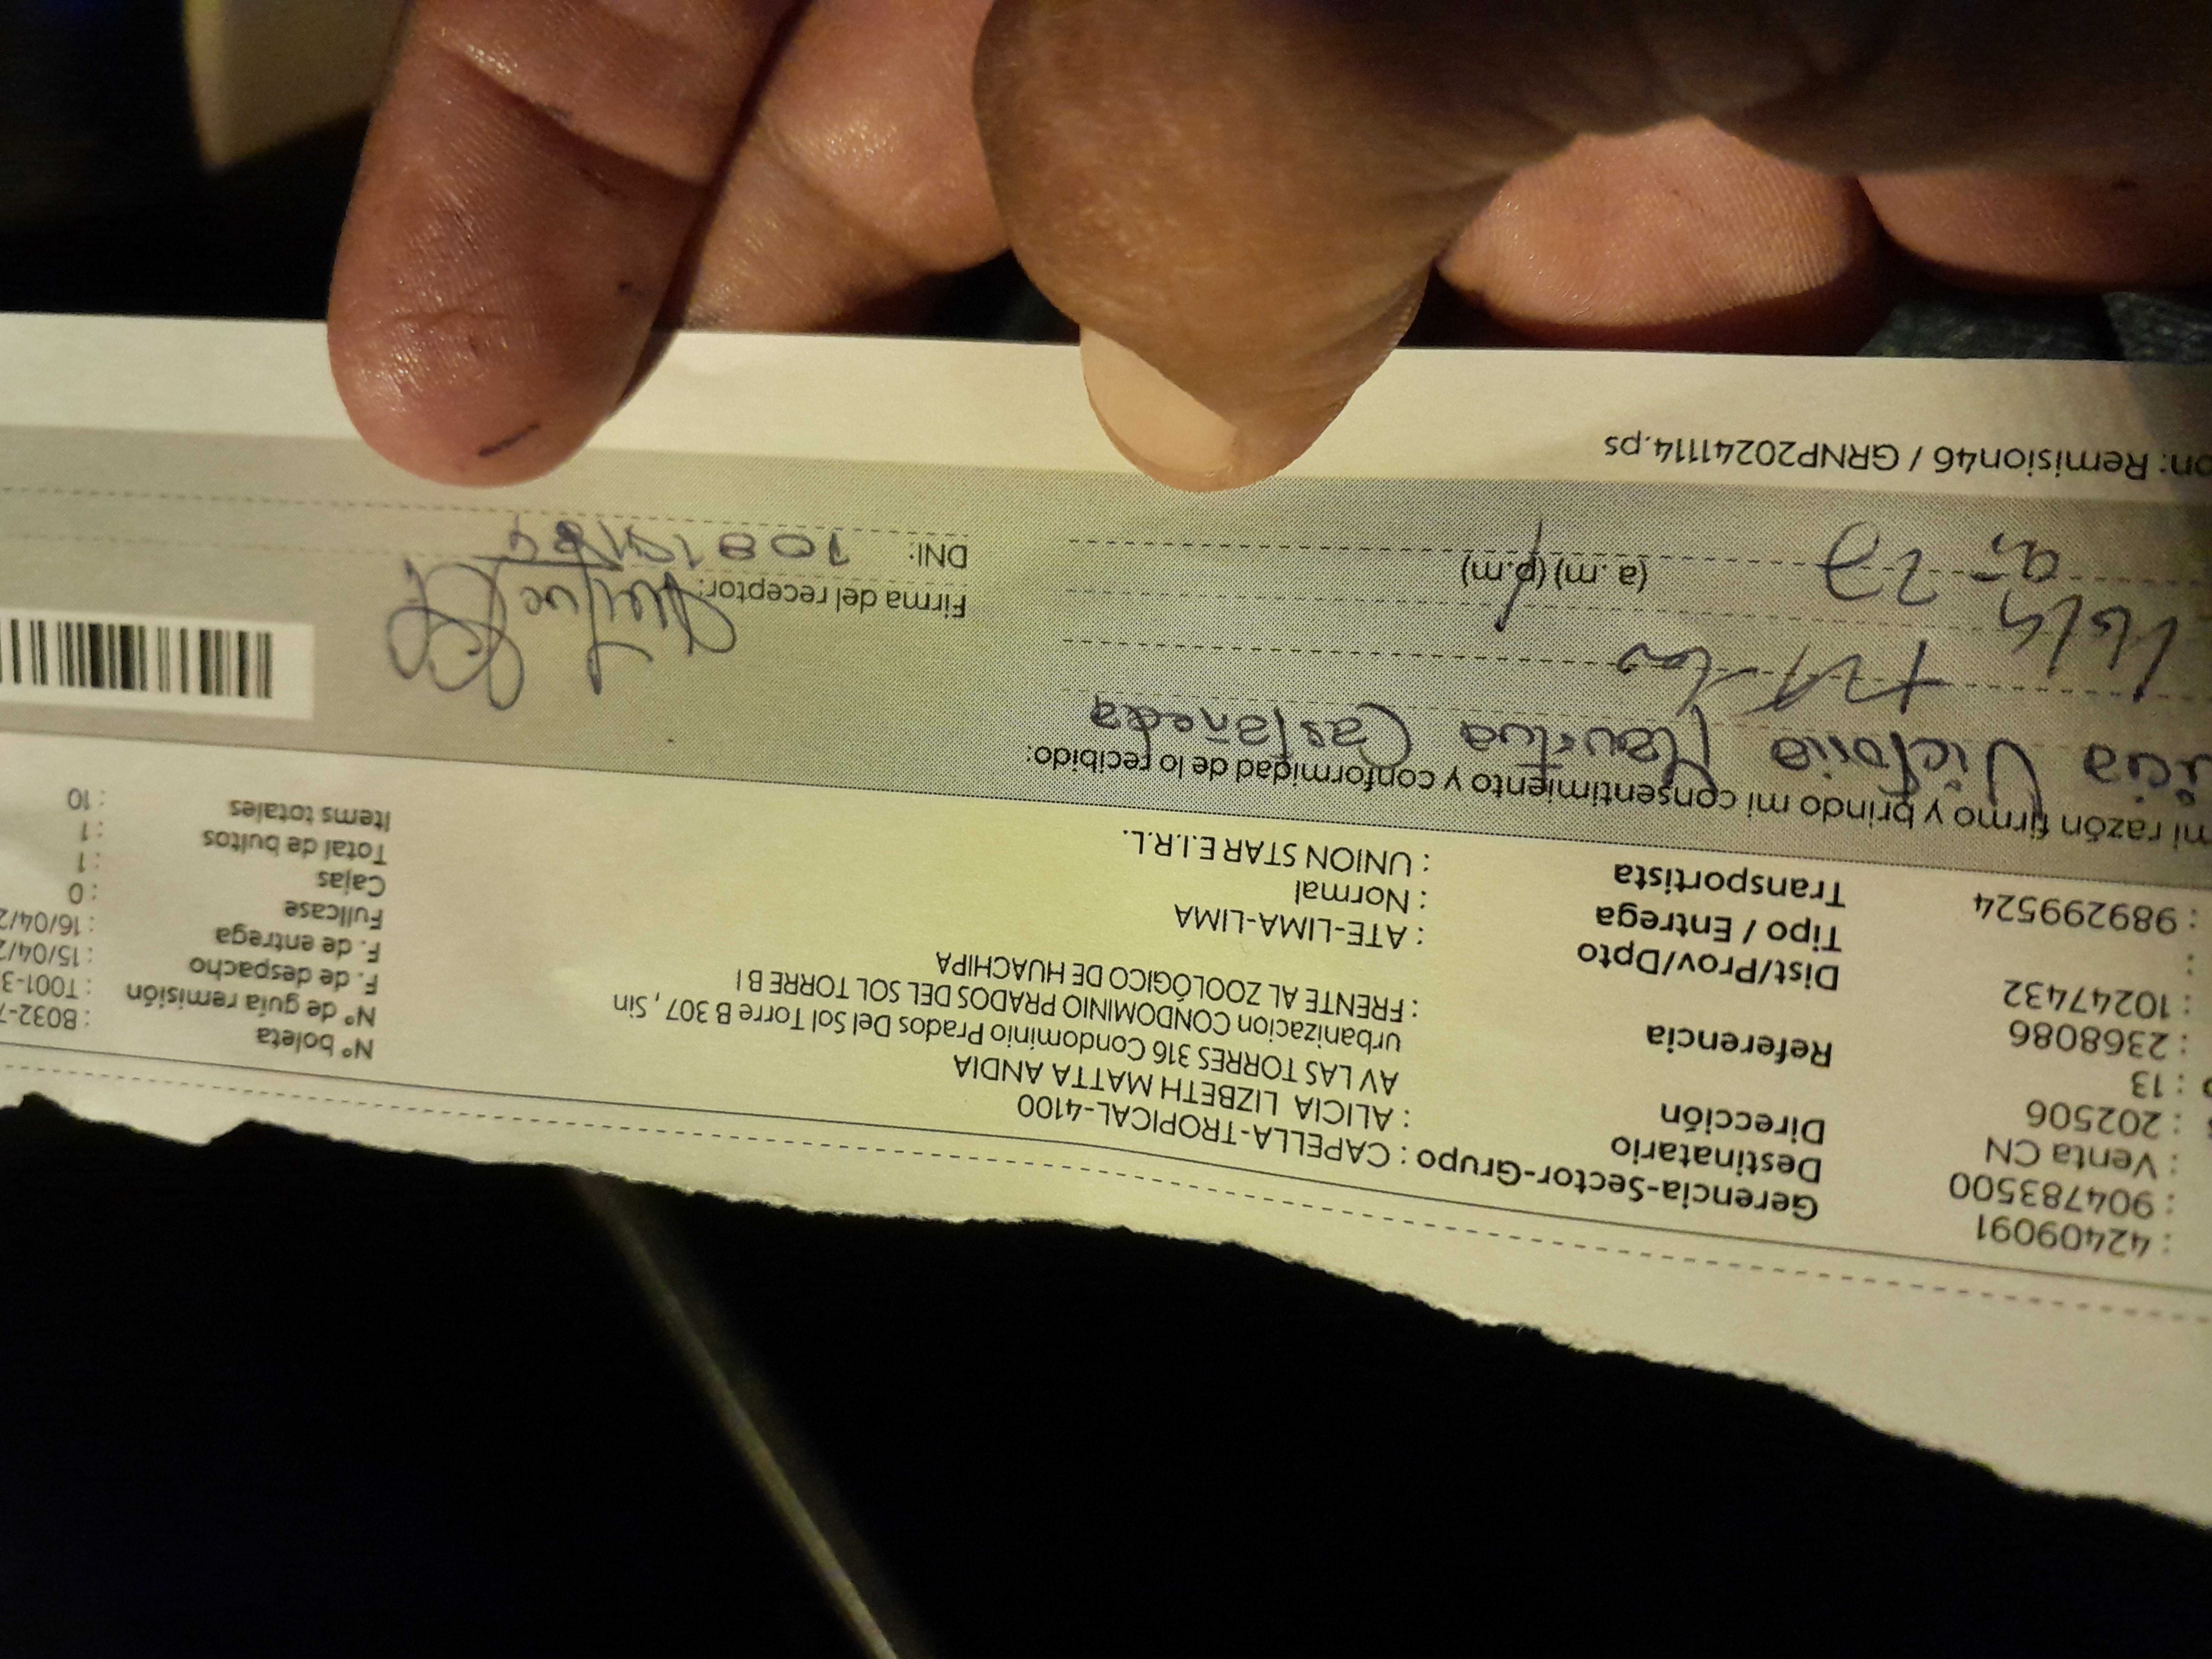 : 42409091
: 904783500
: Venta CN
: 202506
: 13
: 2368086
: 10247432
:
: 989299524
Gerencia-Sector-Grupo : CAPELLA-TROPICAL-4100
Destinatario : ALICIA LIZBETH MATTA ANDIA
Dirección AV LAS TORRES 316 Condominio Prados Del Sol Torre B 307 , Sin
urbanizacion CONDOMINIO PRADOS DEL SOL TORRE B I
Referencia : FRENTE AL ZOOLÓGICO DE HUACHIPA
Dist/Prov/Dpto : ATE-LIMA-LIMA
Tipo / Entrega : Normal
Transportista : UNION STAR E.I.R.L.
Nº boleta : B032-7
Nº de guía remisión : T001-3
F. de despacho : 15/04/2
F. de entrega : 16/04/2
Fullcase : 0
Cajas : 1
Total de bultos : 1
Items totales : 10
mi razón firmo y brindo mi consentimiento y conformidad de lo recibido:
Victoria Castañeda
(a. m) (p.m)
Firma del receptor:
DNI:
on: Remision46 / GRNP20241114.ps